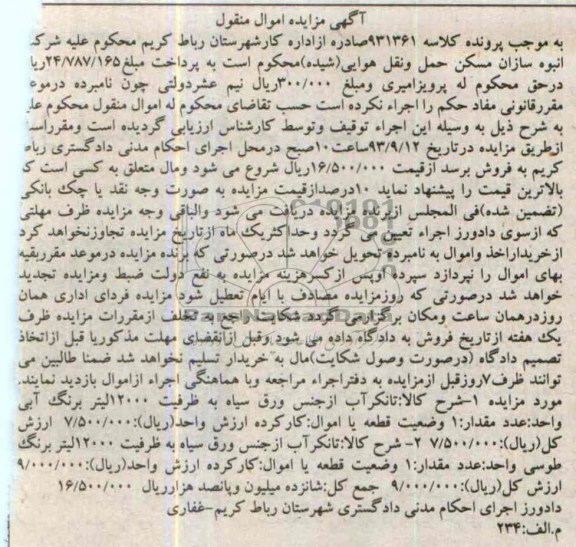 آگهی مزایده اموال منقول
به موجب پرونده کلاسه ۹۳۱۳۶۱صادره ازاداره کارشهرستان رباط کریم محکوم علیه شرکت
انبوه سازان مسکن حمل ونقل هوایی(شیده)محکوم است به پرداخت مبلغ۲۴/۷۸۷/۱۶۵ریا
درحق محکوم له پرویزامیری ومبلغ ۳۰۰/۰۰۰ریال نیم عشردولتی چون نامبرده درموعد
مقررقانونی مفاد حکم را اجراء نکرده است حسب تقاضای محکوم له اموال منقول محکوم علی
به شرح ذیل به وسیله این اجراء توقیف وتوسط کارشناس ارزیابی گردیده است ومقرراست
ازطریق مزایده درتاریخ ۹۳/۹/۱۲ساعت۱۰صبح درمحل اجرای احکام مدنی دادگستری رباط
کریم به فروش برسد ازقیمت ۱۶/۵۰۰/۰۰۰ریال شروع می شود ومال متعلق به کسی است که
بالاترین قیمت را پیشنهاد نماید ۱۰درصدازقیمت مزایده به صورت وجه نقد یا چک بانکی
(تضمین شده)فی المجلس ازبرنده مزایده دریافت می شود والباقی وجه مزایده ظرف مهلتی
که ازسوی دادورز اجراء تعیین می گردد وحداکثریک ماه ازتاریخ مزایده تجاوزنخواهد کرد
ازخریداراخذ واموال به نامبرده تحویل خواهد شد درصورتی که برنده مزایده درموعد مقرربقیه
بهای اموال را نپردازد سپرده اوپس ازکسرهزینه مزایده به نفع دولت ضبط ومزایده تجدید
خواهد شد درصورتی که روزمزایده مصادف با ایام تعطیل شود مزایده فردای اداری همان
روزدرهمان ساعت ومکان برگزارمی گردد شکایت راجع به تخلف ازمقررات مزایده ظرف
یک هفته ازتاریخ فروش به دادگاه داده می شود وقبل ازانقضای مهلت مذکوریا قبل ازاتخاذ
تصمیم دادگاه (درصورت وصول شکایت)مال به خریدار تسلیم نخواهد شد ضمنا طالبین می
توانند ظرف۷روزقبل ازمزایده به دفتراجراء مراجعه وبا هماهنگی اجراء ازاموال بازدید نمایند.
مورد مزایده ۱-شرح کالا:تانکرآب ازجنس ورق سیاه به ظرفیت ۱۲۰۰۰لیتر برنگ آبی
واحد:عدد مقدار:۱ وضعیت قطعه یا اموال:کارکرده ارزش واحد(ریال):۷/۵۰۰/۰۰۰ ارزش
کل(ریال):۷/۵۰۰/۰۰۰ ۲- شرح کالا:تانکرآب ازجنس ورق سیاه به ظرفیت ۱۲۰۰۰لیتر برنگ
طوسی واحد:عدد مقدار:۱ وضعیت قطعه یا اموال:کارکرده ارزش واحد(ریال):۹/۰۰۰/۰۰۰
ارزش کل(ریال):۹/۰۰۰/۰۰۰ جمع کل:شانزده میلیون وپانصد هزارریال ۱۶/۵۰۰/۰۰۰
دادورز اجرای احکام مدنی دادگستری شهرستان رباط کریم-غفاری
م.الف:۲۳۴